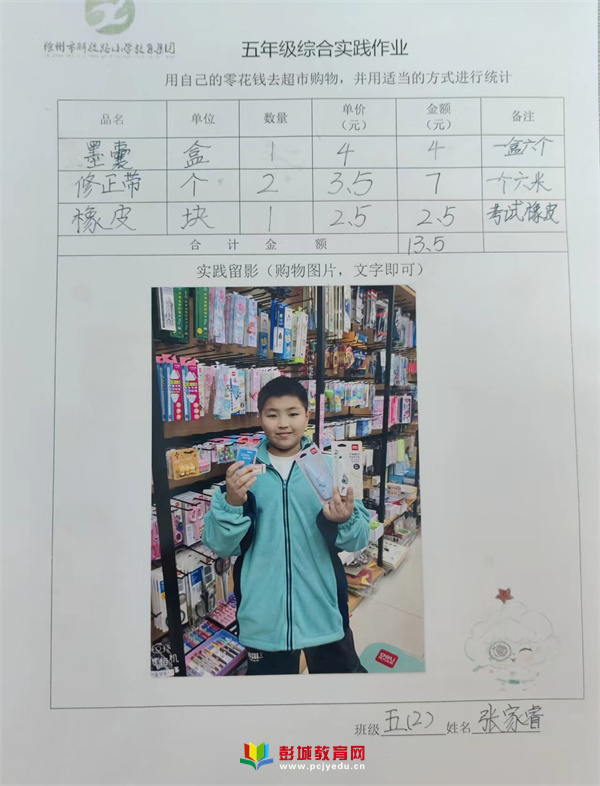 徐州市解放路小学教育集团
五年级综合实践作业
用自己的零花钱去超市购物，并用适当的方式进行统计
品名 单位 数量 单价（元） 金额（元） 备注
墨囊 盒 1 4 4 一盒六个
修正带 个 2 3.5 7 一个六米
橡皮 块 1 2.5 2.5 考试橡皮
合计金额 13.5
实践留影（购物图片，文字即可）
deli
班级 五(2) 姓名 张家睿
彭城教育网
www.pcjyedu.cn